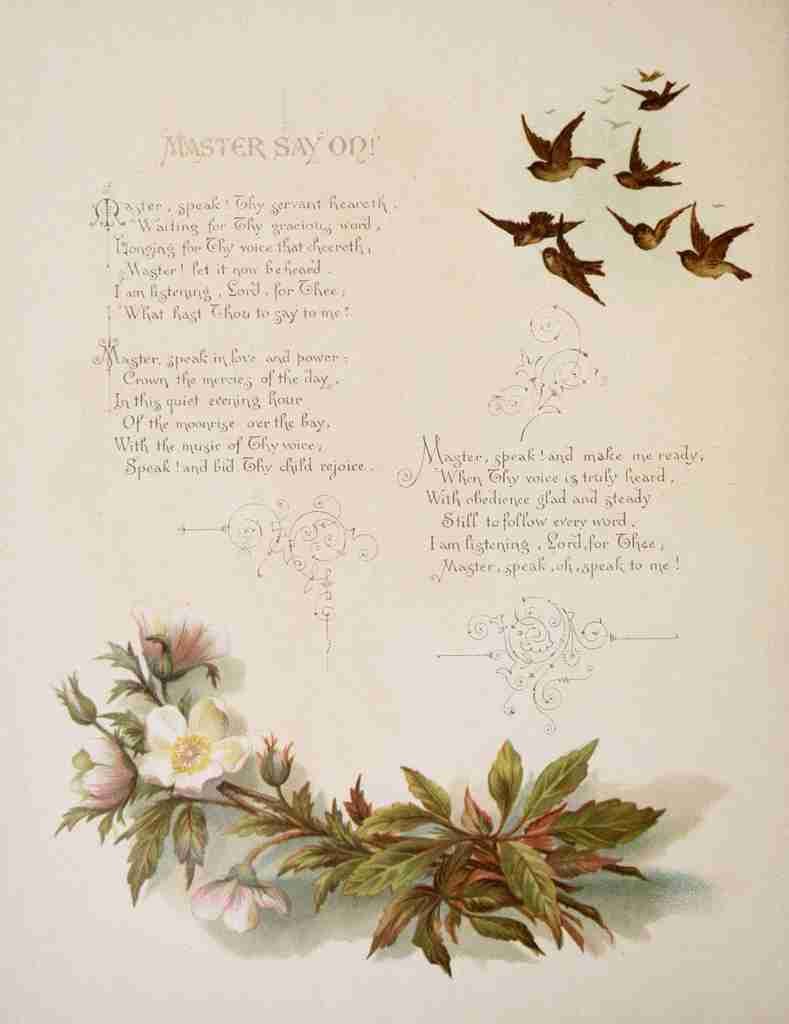 MASTER SAY ON!
Master, speak! Thy servant heareth,
Waiting for Thy gracious word,
Longing for Thy voice that cheereth,
Master! let it now be heard.
I am listening, Lord, for Thee;
What hast Thou to say to me!
Master, speak in love and power;
Crown the mercies of the day,
In this quiet evening hour
Of the moonrise over the bay,
With the music of Thy voice;
Speak! and bid Thy child rejoice.
Master, speak! and make me ready,
When Thy voice is truly heard,
With obedience glad and steady
Still to follow every word.
I am listening, Lord, for Thee;
Master, speak, oh, speak to me!